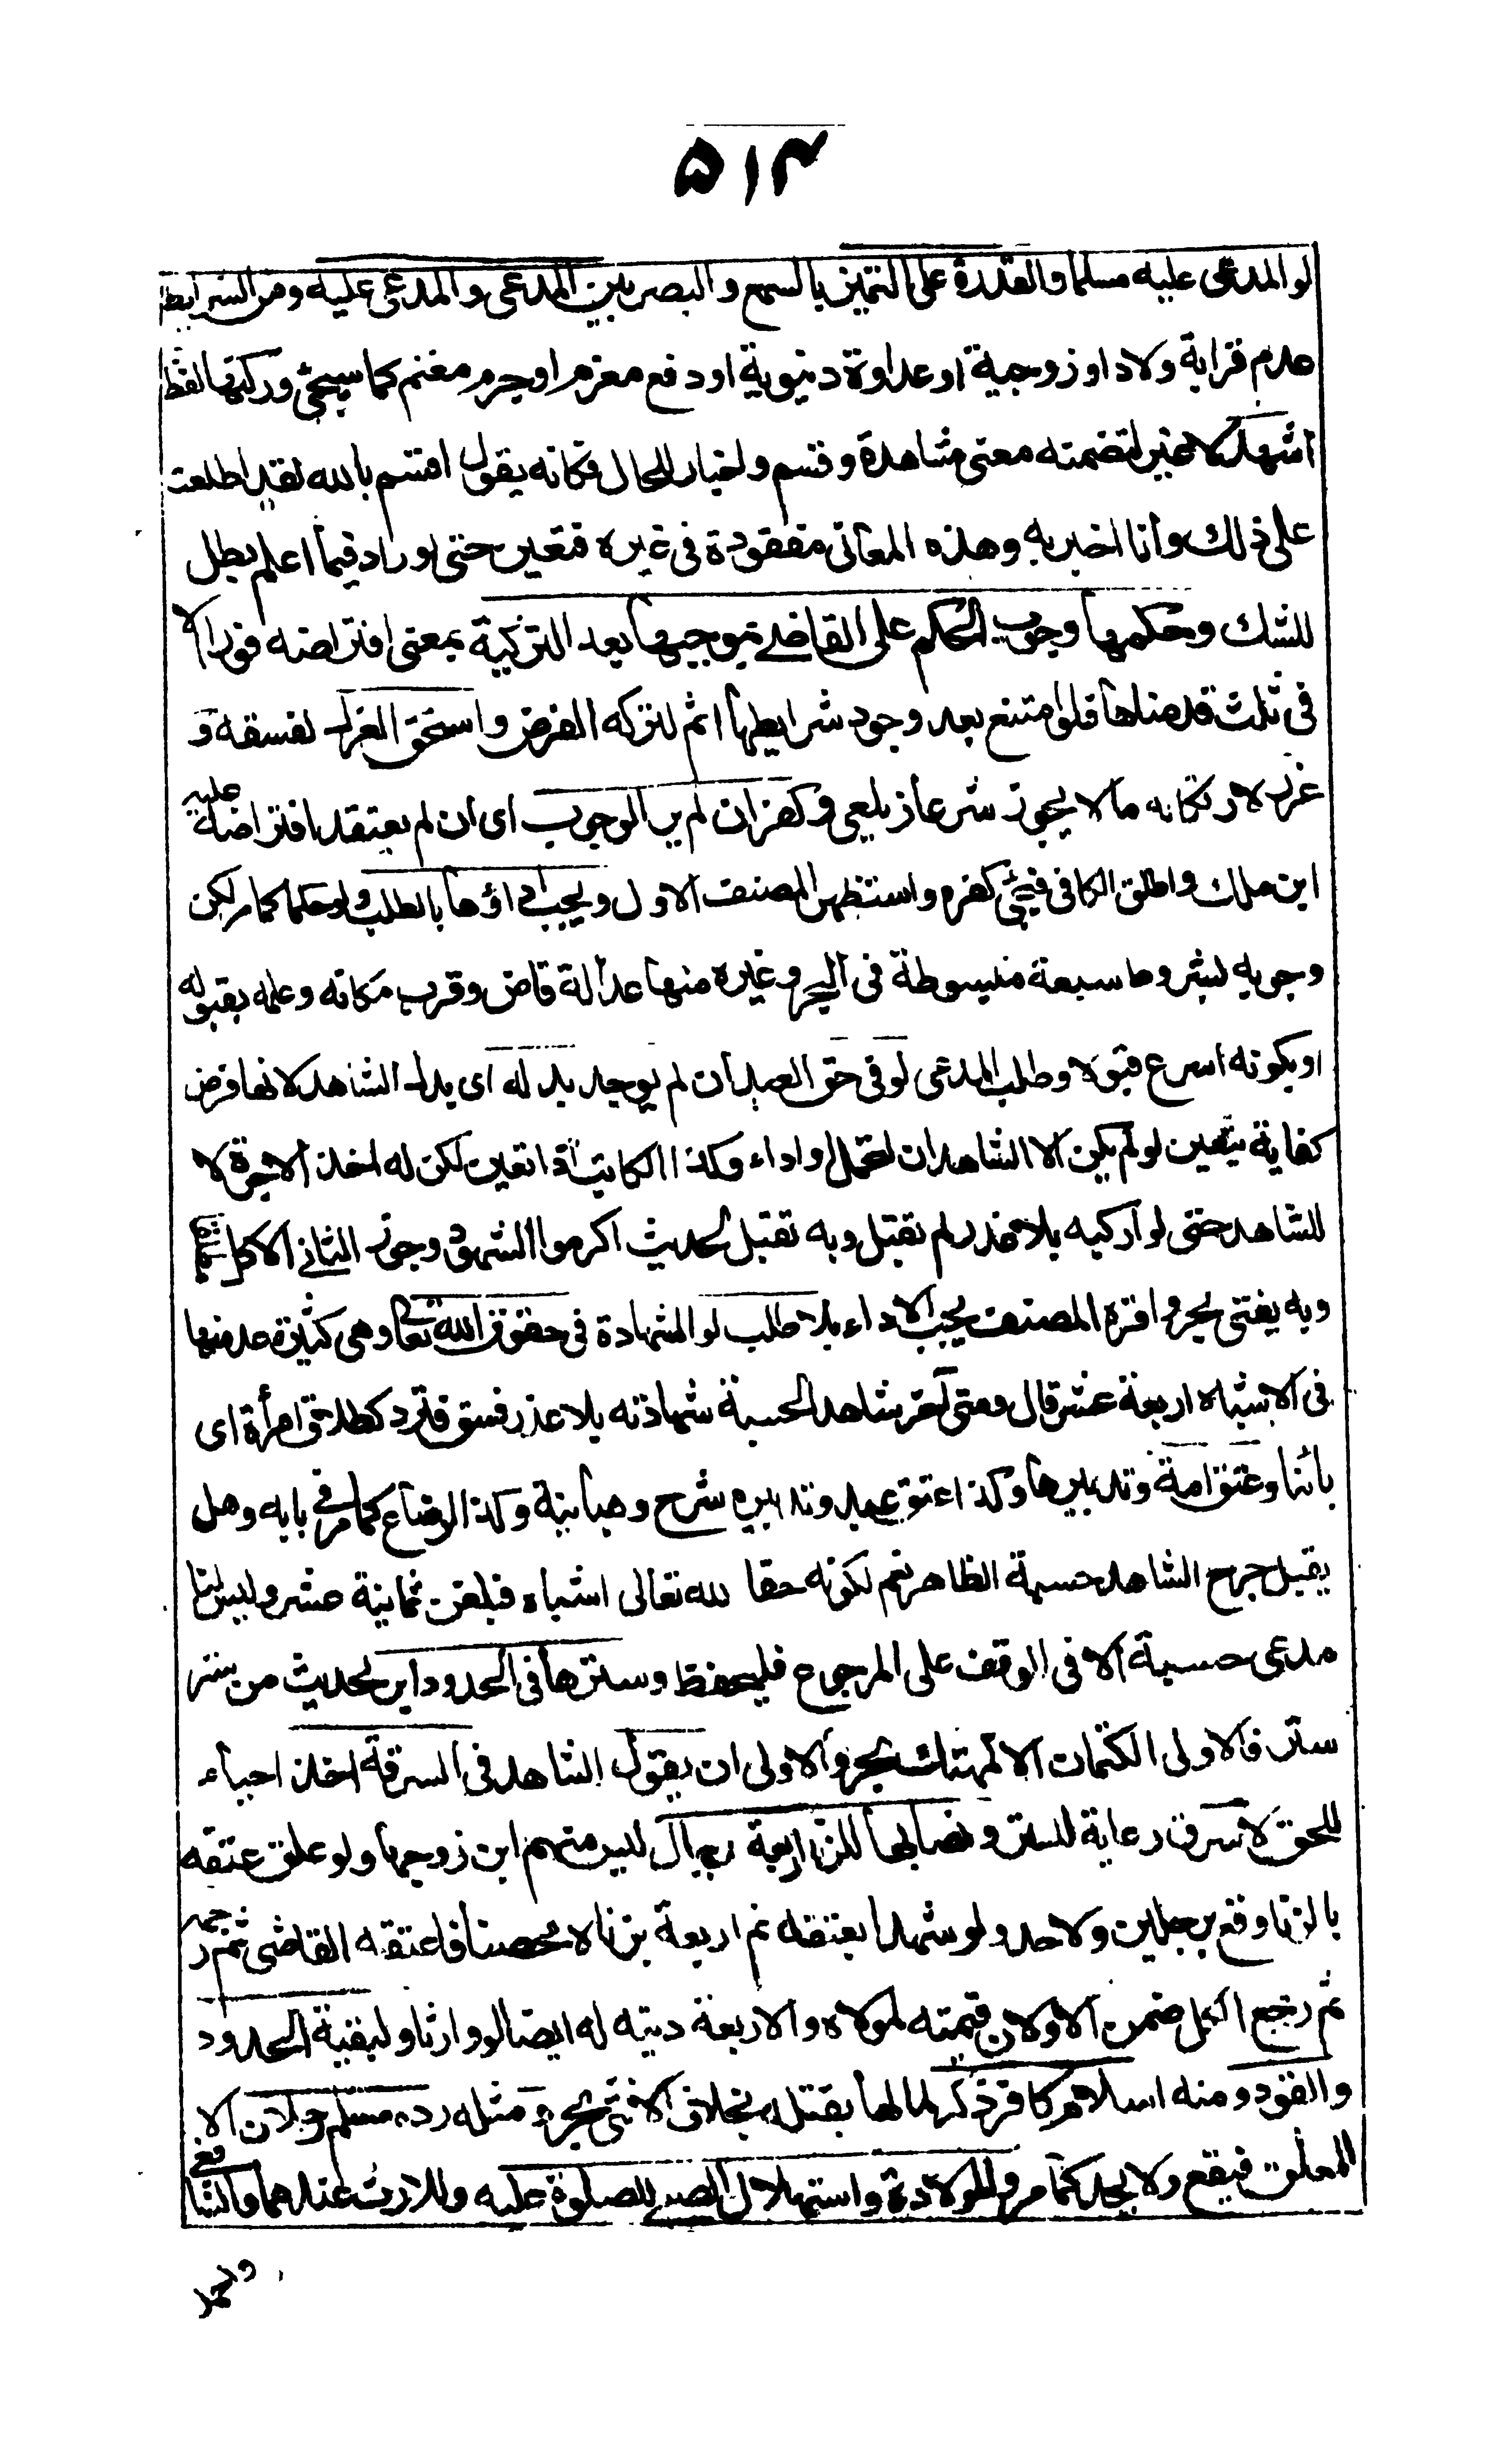 ٥١٣
لو المدعى عليه مسلما والقدرة على التميز بالسمع والبصر بين المدعى والمدعى عليه ومن الشرايط
عدم قرابة ولاد او زوجية او عداوة دنيوية او دفع مغرم او جر مغنم كما سيجئ وركنها لفظ
اشهد لا غير لتضمنه معنى مشاهدة وقسم واخبار للحال فكانه يقول اقسم بالله لقد اطلعت
على ذلك وانا اخبر به وهذه المعانى مفقودة فى غيره فتعين حتى لو زاد فيما اعلم بطل
للشك وحكمها وجوب الحكم على القاضى بموجبها بعد التزكية بمعنى افتراضه فورا الا
فى ثلث قدمناها فلو امتنع بعد وجود شرايطها اثم لتركه الفرض واستحق العزل لفسقه و
عزر لارتكابه مالا يجوز شرعا زيلعى وكفر ان لم ير الوجوب اى ان لم يعتقد افتراضه عليه
ابن ملك واطلق الكافيجئى كفره واستظهر المصنف الاول ويجب اداؤها بالطلب ولو حكما كما مر لكن
وجوبه بشروط سبعة مبسوطة فى البحر وغيره منها عدالة قاض وقرب مكانه وعلمه بقبوله
او بكونه اسرع قبولا وطلب المدعى لو فى حق العبد ان لم يوجد بدله اى بدل الشاهد لانها فرض
كفاية يتعين لو لم يكن الا الشاهدان لتحمل او اداء وكذا الكاتب اذا تعين لكن له اخذ الاجرة لا
للشاهد حتى لو اركبه بلا عذر لم تقبل وبه تقبل لحديث اكرموا الشهود وجوز الثانى الاكل
وبه يفتى بحر واقره المصنف يجب الاداء بلا طلب لو الشهادة فى حقوق الله تعالى وهى كثيرة عد منها
فى الاشباه اربعة عشر قال ومتى اخر شاهد الحسبة شهادته بلا عذر فسق فترد كطلاق امرأة اى
بائنا وعتق امة وتدبيرها وكذا عتق عبد وتدبيره شرح وهبانية وكذا الرضاع كما مر فى بابه وهل
يقبل جرح الشاهد حسبة الظاهر نعم لكونه حقا لله تعالى اشباه فبلغت ثمانية عشر وليس لنا
مدعى حسبة الا فى الوقف على المرجوح فليحفظ وسترها فى الحدود ابر لحديث من ستر
ستر فالاولى الكتمان الا لمتهتك بحر والاولى ان يقول الشاهد فى السرقة اخذ احياء
للحق لا سرق رعاية للستر ونصابها للزنا اربعة رجال ليس منهم ابن زوجها ولو علق عتقه
بالزنا وقع برجلين ولا حد ولو شهدا بعتقه ثم اربعة بزناه محصنا فاعتقه القاضى ثم رجمه
ثم رجع الكل ضمن الاولان قيمته لمولاه والاربعة ديته له ايضا لو وارثا ولبقية الحدود
والقود ومنه اسلام كافر ذكر لمالها بقتله بخلاف الانثى بحر ومثله ردة مسلم رجلان الا
المعلق فيقع ولا يحد كما مر وللولادة واستهلال الصبى للصلوة عليه وللارث عندهما والشافعى